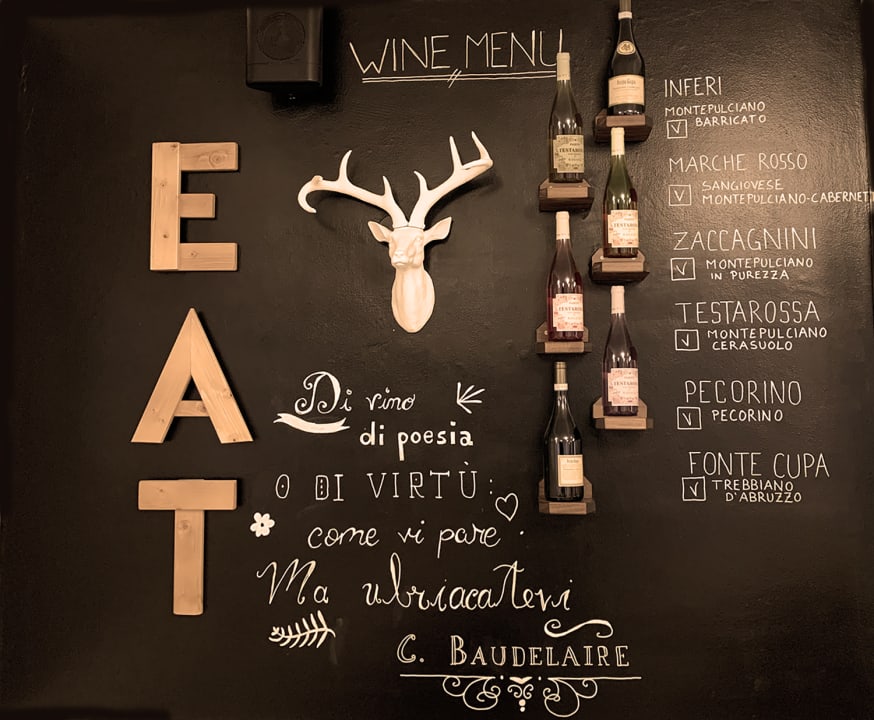 WINE MENU
EAT
INFERI
MONTEPULCIANO
V BARRICATO
MARCHE ROSSO
V SANGIOVESE
MONTEPULCIANO-CABERNET
ZACCAGNINI
V MONTEPULCIANO
IN PUREZZA
TESTAROSSA
V MONTEPULCIANO
CERASUOLO
PECORINO
V PECORINO
FONTE CUPA
V TREBBIANO
D'ABRUZZO
Di vino
di poesia
O DI VIRTÙ:
come vi pare.
Ma ubriacatevi
C. BAUDELAIRE